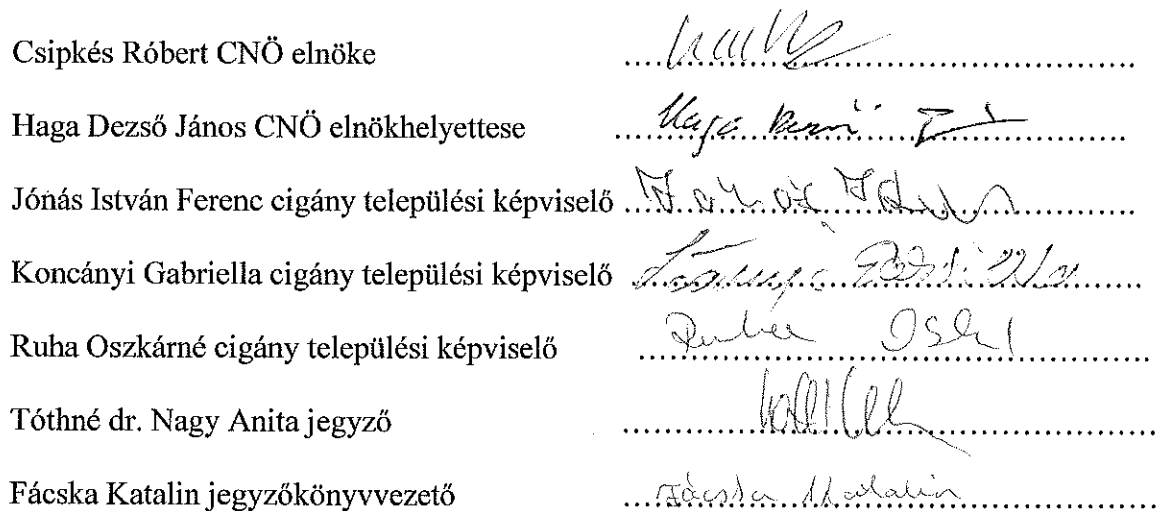 Csipkés Róbert CNÖ elnöke ................
Haga Dezső János CNÖ elnökhelyettese ....Haga Dezső................
Jónás István Ferenc cigány települési képviselő ................
Koncányi Gabriella cigány települési képviselő ................
Ruha Oszkárné cigány települési képviselő ....Ruha................
Tóthné dr. Nagy Anita jegyző ................
Fácska Katalin jegyzőkönyvvezető ....Fácska Katalin................